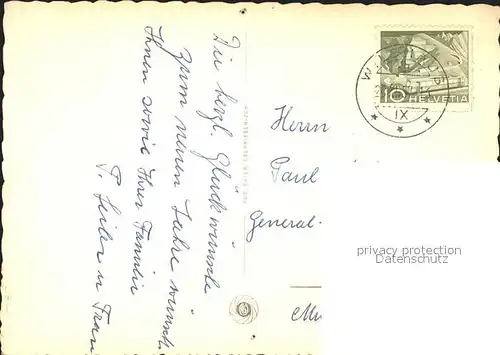 Die herzl. Glückwünsche
zum neuen Jahre wünscht
Ihnen sowie Ihrer Familie
P. Seiler u Frau
Herrn
Paul
General-
HELVETIA
10
IX
privacy protection
Datenschutz